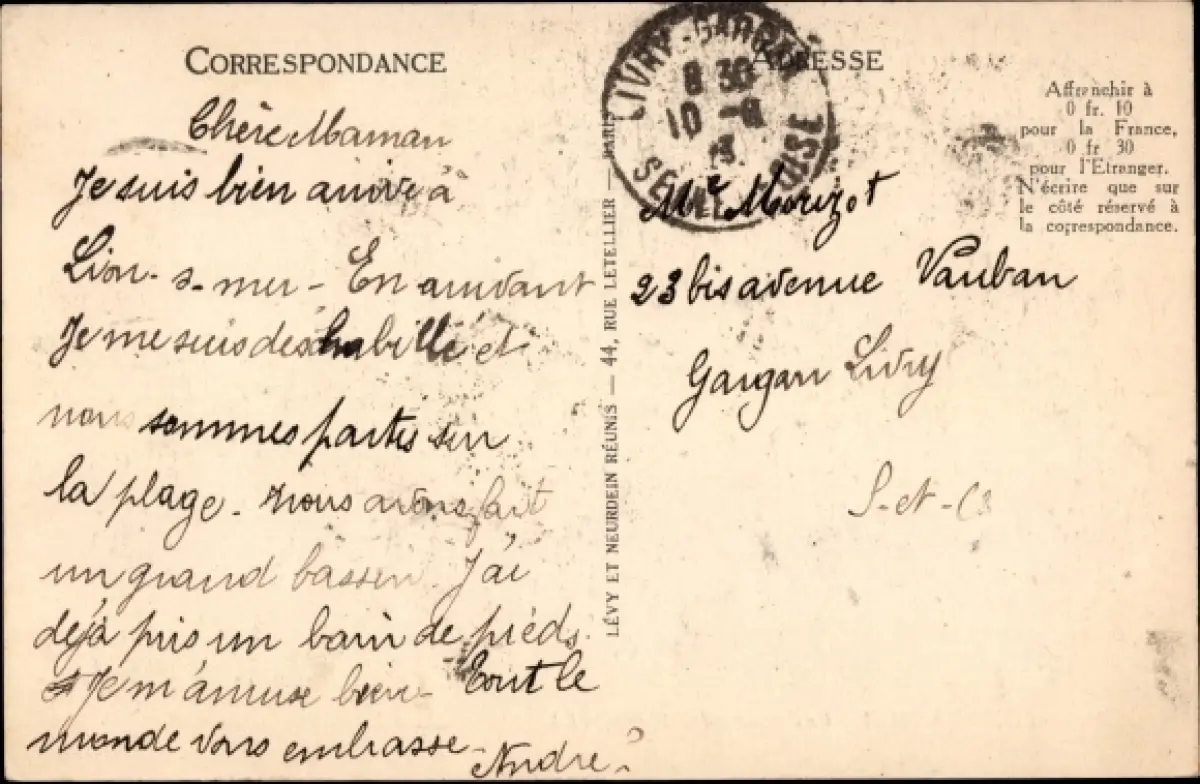 CORRESPONDANCE
Chère Maman
Je suis bien arrivé à
Lion-s-mer - En arrivant
Je me suis deshabillé et
nous sommes partis sur
la plage. nous avons fait
un grand bassin. J'ai
déjà pris un bain de pièds.
Je m'amuse bien - Tout le
monde vous embrasse - André
LÉVY ET NEURDEIN RÉUNIS — 44, RUE LETELLIER — PARIS
ADRESSE
LIVRY-GARGAN
8 30
10 -8
SEINE OISE
Affranchir à
0 fr. 10
pour la France,
0 fr 30
pour l'Etranger.
N'écrire que sur
le côté réservé à
la correspondance.
Me Morizot
23 bis avenue Vauban
Gargan Livry
S-et-